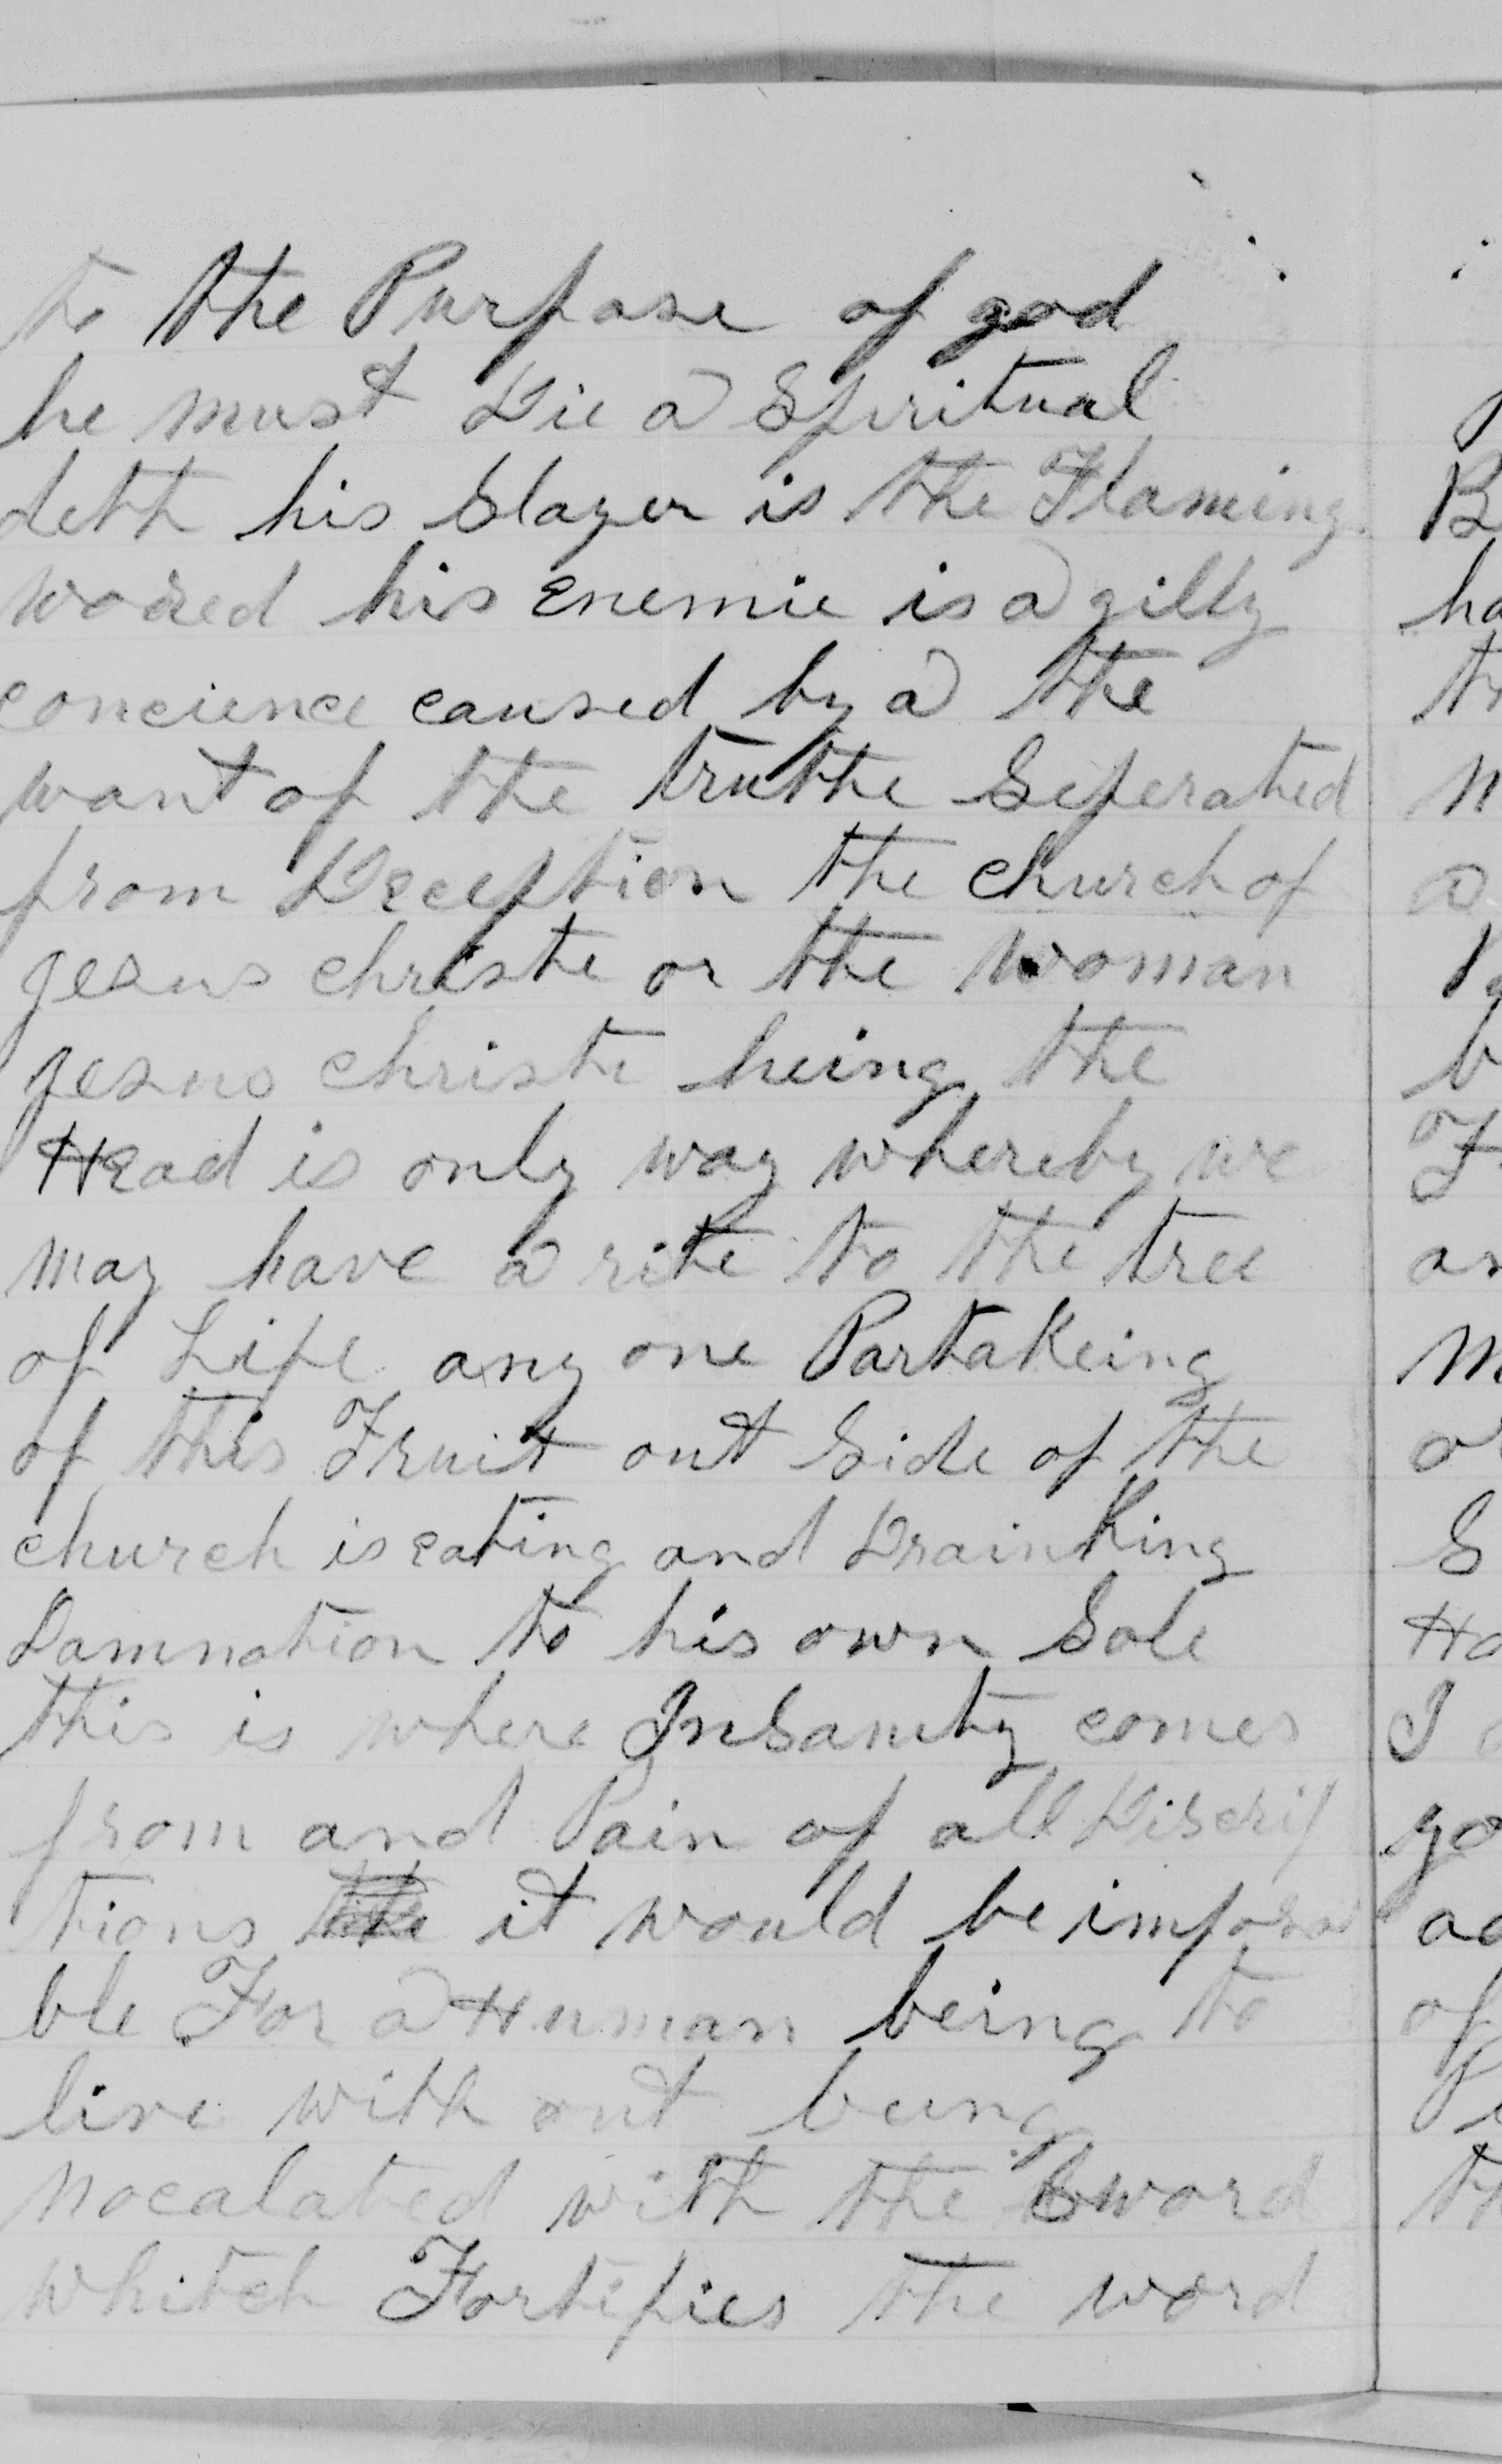 to the Purpose of god
he must Die a Spiritual
deth his Slayer is the Flaming
his enemie is a gilty
concience caused by a the
want of the truthe Seperated
from Deception the church of
jesus christe or the woman
jesus christe being the
Head is only way whereby we
may have a rite to the tree
of Life any one Partakeing
of this Fruit out Side of the
church is eating and Drainking
Damnation to his own Sole
this is where InSanity comes
from and Pain of all Discrip
tions it would be imposs
ble For a Human being to
live with out being
nocalated with the Sword
whitch Fortifies the word